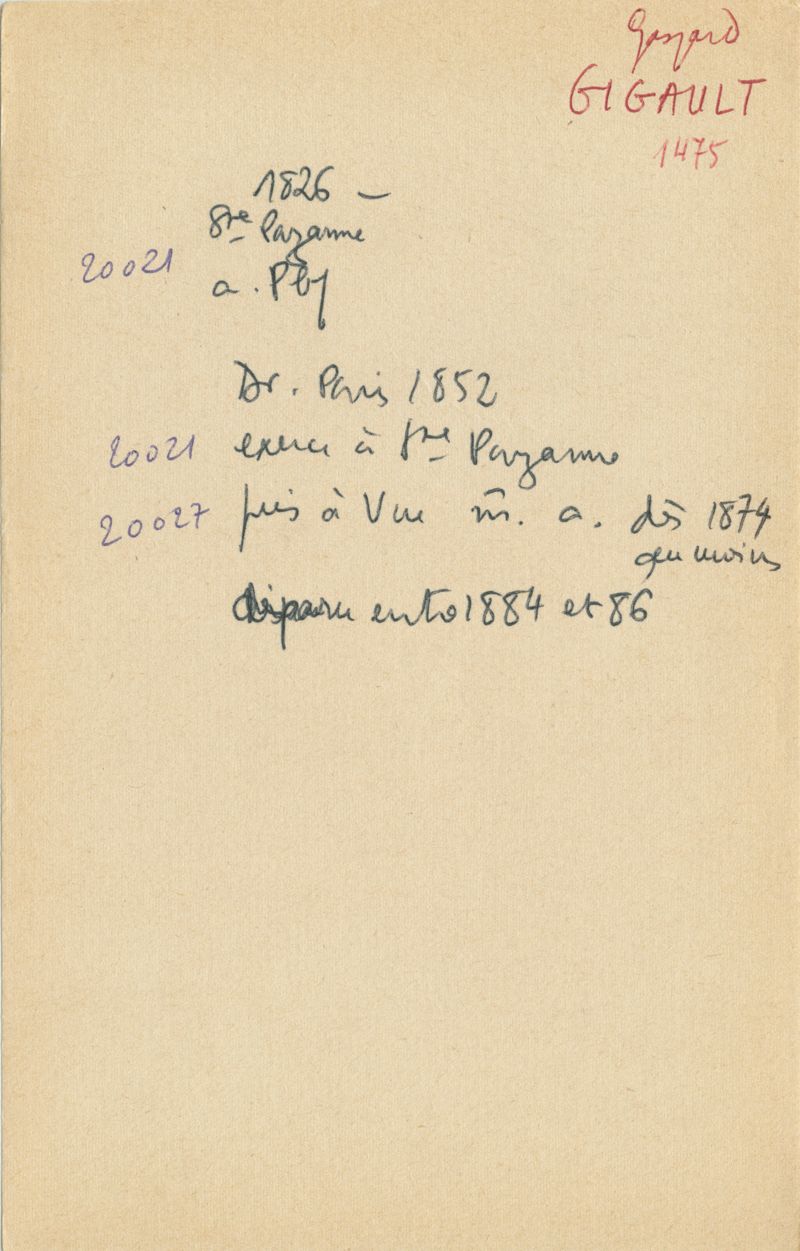 Gaspard
GIGAULT
1475
1826 –
Ste Pazanne
20021
a. Pbf
Dr. Paris 1852
20021 exerce à Ste Pazanne
20027 puis à Vue m. a. dès 1874
au moins
disparu entre 1884 et 86